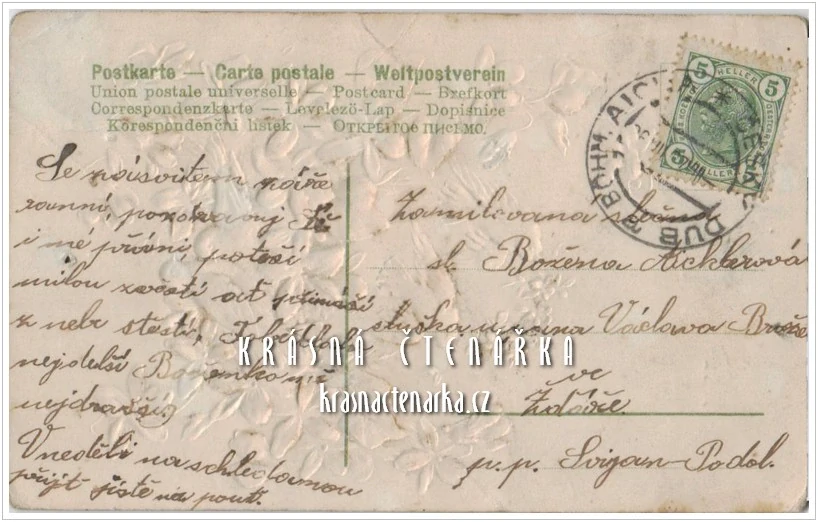 Postkarte — Carte postale — Weltpostverein
Union postale universelle — Postcard — Brefkort
Correspondenzkarte — Levelező-Lap — Dopisnice
Korespondenčni listek — Открытое письмо.
5 HELLER 5
5 HELLER
BÖHM. AICHA
ČESKÝ DUB
Se zásvitem záře
ranní,
i mé přání, potěší
milou zvěstí ať přináší
z nebe štěstí,
nejdelší Boženko má
nejdražší)
V neděli na schledanou
přijď jistě na pouť.
Zamilovaná slečna
sl. Božena Aichlerová
služka u pana Václava Brože
ve
Žďáře
p. p. Svigan-Podol.
KRÁSNÁ ČTENÁŘKA
krasnactenarka.cz